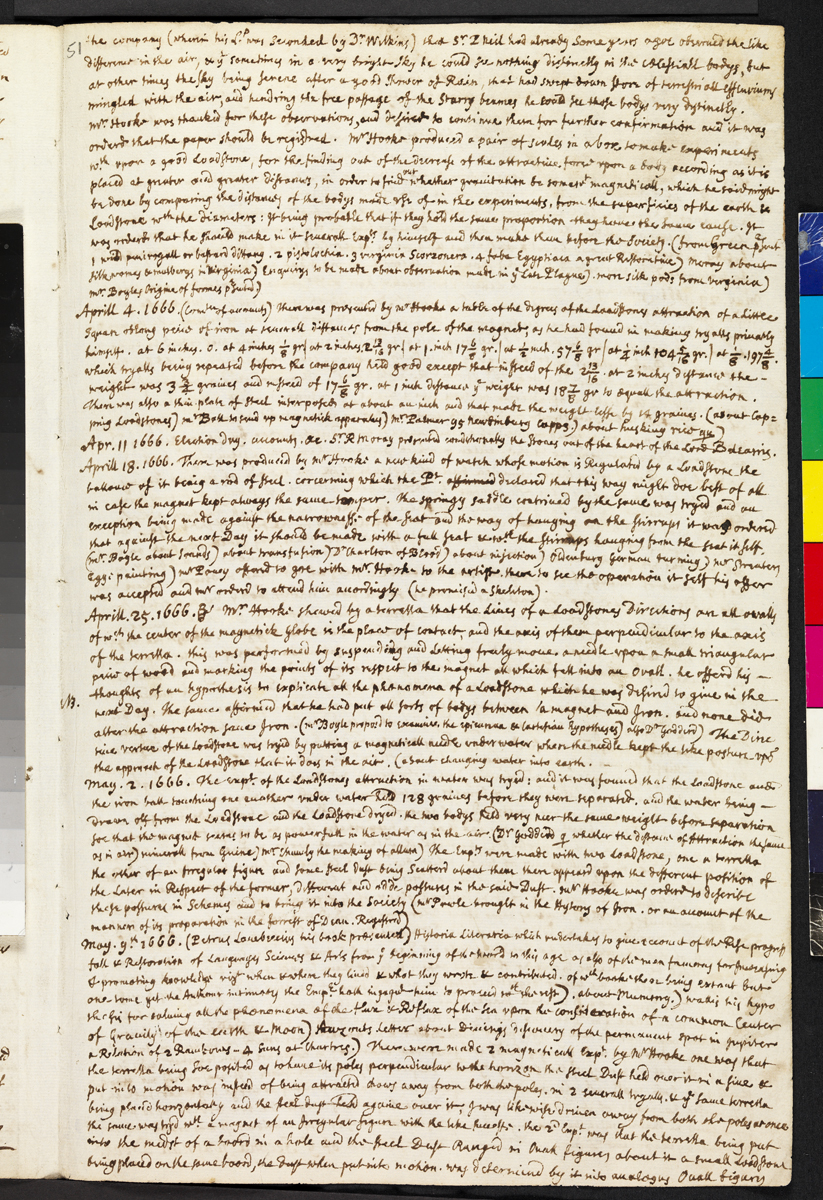 51
the company (wherein his Lp. was seconded by Dr. Wilkins) that Sr. P Neil had already some years agoe observed the like
difference in the air, & yt sometimes in a very bright sky he could see nothing distinctly in the celestiall bodys, but
at other times the sky being serene after a good shower of Rain, that had swept down store of terrestriall effluviums
mingled with the air, and hindring the free passage of the starry beames he could see those bodys very distinctly.
Mr. Hooke was thanked for these observations, and desired to continue them for further confirmation and it was
orderd that the paper should be registred. Mr. Hooke produced a pair of scales in a box to make experiments
wth. upon a good Loadstone, for the finding out of the decrease of the attractive force upon a body according as it is
placed at greater and greater distances, in order to find out whether gravitation be somewt magneticall, which he said might
be done by comparing the distances of the bodys made use of in the experiments, from the superficies of the earth &
Loadstone wth the diameters: It being probable that if they hold the same proportion they have the same cause. It
was orderd that he should make in it severall Expts. by himself and then make them before the Society. (from Green
1 wild pennyroyall or bastard dittany. 2 pistolochia. 3 virginia Scorzonera. 4 faba Egyptiaca a great Restorative) Moray about
silk wormes & mulberys in Virginia) Enquirys to be made about observation made in ye Late Plague). more silk pods from virginia)
Mr. Boyles Origine of formes prsented)
Aprill 4. 1666. (Comtee of accounts) There was presented by Mr Hooke a table of the degrees of the Loadstones attraction of a little
square oblong peice of iron at severall distances from the pole of the magnet, as he had found in making tryalls privatly
himself. at 6 inches. 0. at 4 inches 1/8 gr/ at 2 inches. 2 13/16 gr/ at 1. inch 17 6/8 gr./ at 1/2 inch. 57 6/8 gr/ at 1/4 inch 104 4/8 gr./ at 1/8. 197 4/8.
which tryalls being repeated before the company held good except that insteed of the 2 13/16. at 2 inches distance the -
weight was 3 3/4 graines and insteed of 17 6/8 gr. at 1 inch distance ye weight was 18 7/8 gr to æquall the attraction.
There was also a thin plate of steel interposed at about an inch and that made the weight lesse by 12 graines. (about Cap-
ping Loadstones) Mr Ball to send up magnetick apparatus) Mr. Palmer 95 newtonbury copps) about husking rice)
Apr. 11 1666. Election day. accounts. &c. Sr. R Moray presented conditionally the stones out of the heart of the Lord Balcarris.
Aprill 18. 1666. There was produced by Mr Hooke a new kind of watch whose motion is Regulated by a Loadstone the
ballance of it being a rod of steel. concerning which the Pr. declared that this way might doe best of all
in case the magnet kept always the same temper. The springy saddle contrived by the same was tryed and an
exception being made against the narrownesse of the seat and the way of hanging on the stirrups it was ordered
that against the next Day it should be made with a full seat & wth the stirrups hanging from the seat it self.
(Mr. Boyle about sounds) about transfusion) Dr Charlton of Blood) about injection) oldenburg German turning) Mr. Streaters
Eggs painting) Mr Povey offerd to goe with Mr. Hooke to the artist there to see the operation it self his offer
was accepted and Mr orderd to attend him accordingly. (he promised a skeleton).
Aprill. 25. 1666. Mr. Hooke shewed by a terrella that the Lines of a Loadstones Directions are all ovalls
of wch the center of the magnetick Globe is the place of contact, and the axis of them perpendicular to the axis
of the terrella. this was performed by suspending and letting freely move a needle upon a small triangular
peice of wood and marking the points of its respect to the magnet all which fell into an Ovall. he offerd his -
thoughts of an hypothesis to explicate all the phænomena of a Loadstone which he was desired to give in the
NB.
next Day. The same affirmed that he had put all sorts of bodys between a magnet and Iron. and none did
alter the attraction save Iron. (Mr Boyle proposd to examine the epicurean & Cartesian Hypotheses) also Dr Goddard) The Dire
tive vertue of the Loadstone was tryed by putting a magneticall needle underwater when the needle kept the like posture upon
the approach of the Loadstone that it does in the air. (about changing water into earth.
May. 2. 1666. The Expt. of the Loadstones attraction in water was tryed: and it was found that the Loadstone and
the iron ball touching one another under water held 128 graines before they were separated. and the water being -
Drawn off from the Loadstone and the Loadstone dryed. the two bodys held very neer the same weight before separation
soe that the magnet seems to be as powerfull in the water as in the air. (Dr Goddard q whether the distance of Attraction the same
as in air) minerall from Guine) the making of allum) The Expts were made with two Loadstone, one a terrella
the other of an Irregular figure and some steel dust being scatterd about them there appeard upon the different position of
the Later in Respect of the former, different and odde postures in the said Dust. Mr Hooke was orderd to describe
these postures in Schemes and to bring it into the Society (Mr Powle brought in the History of Iron. or an account of the
manner of its preparation in the forrest of Dean. Registred)
May. 9th. 1666. (Petrus Lambecius his book presented) Historia Literaria which undertakes to give account of the Rise progress
fall & Restoration of Languages Sciences & Arts from ye beginning of the world to this age as also of the men famous for Increasing
& promoting knowledge vizt when & where they lived & what they wrote & contributed. of wch booke there being extant but
one tome yet the Authour intimates the Empr. hath ingaged him to proceed wth the rest). about Mummy.) wallis his hypo
thesis for salving all the phænomena of the flux & Reflux of the sea upon the consideration of a common Center
of Gravity of the Earth & Moon) Auzouts letter about Divinis discovery of the permanent spot in Jupiter
a Relation of 2 Rainbows - 4 Suns at Chartres.) There were made 2 magneticall Expts. by Mr Hooke one was that
the terrella being soe posited as to have its poles perpendicular to the horizon the steel Dust held over it in a sive &
put into motion was insteed of being attracted driven away from both the poles. in 2 severall tryalls. & ye same terrella
being placed horizontaly and the steel dust held againe over it, was likewise driven away from both the poles at once
the same was tryd wth a magnet of an Irregular figure with the like successe. the 2d. Expt was that the terrella being put
into the midst of a board in a hole and the steel Dust Ranged in Ovall figures about it a small Loadstone
being placed on the same board, the dust when put into motion. was determined by it into analogus Ovall figures